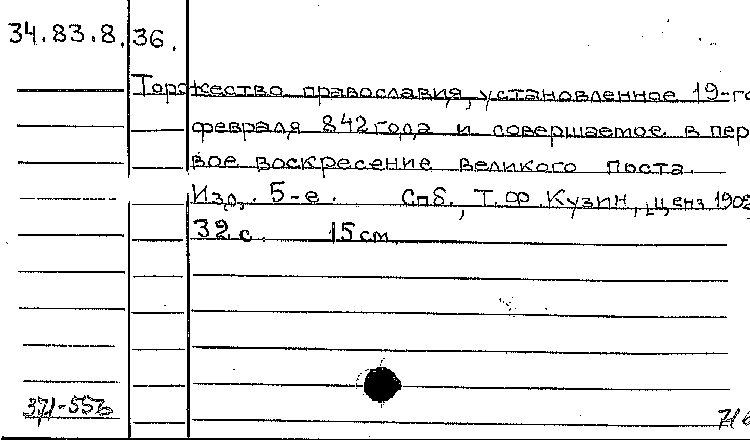 34.83.8.36.
Торжество православия, установленное 19-го
февраля 842 года и совершаемое в пер
вое воскресение великого поста.
Изд. 5-е. Спб., Т.Ф. Кузин, ценз 1902
32 с. 15 см.
371-55б
716